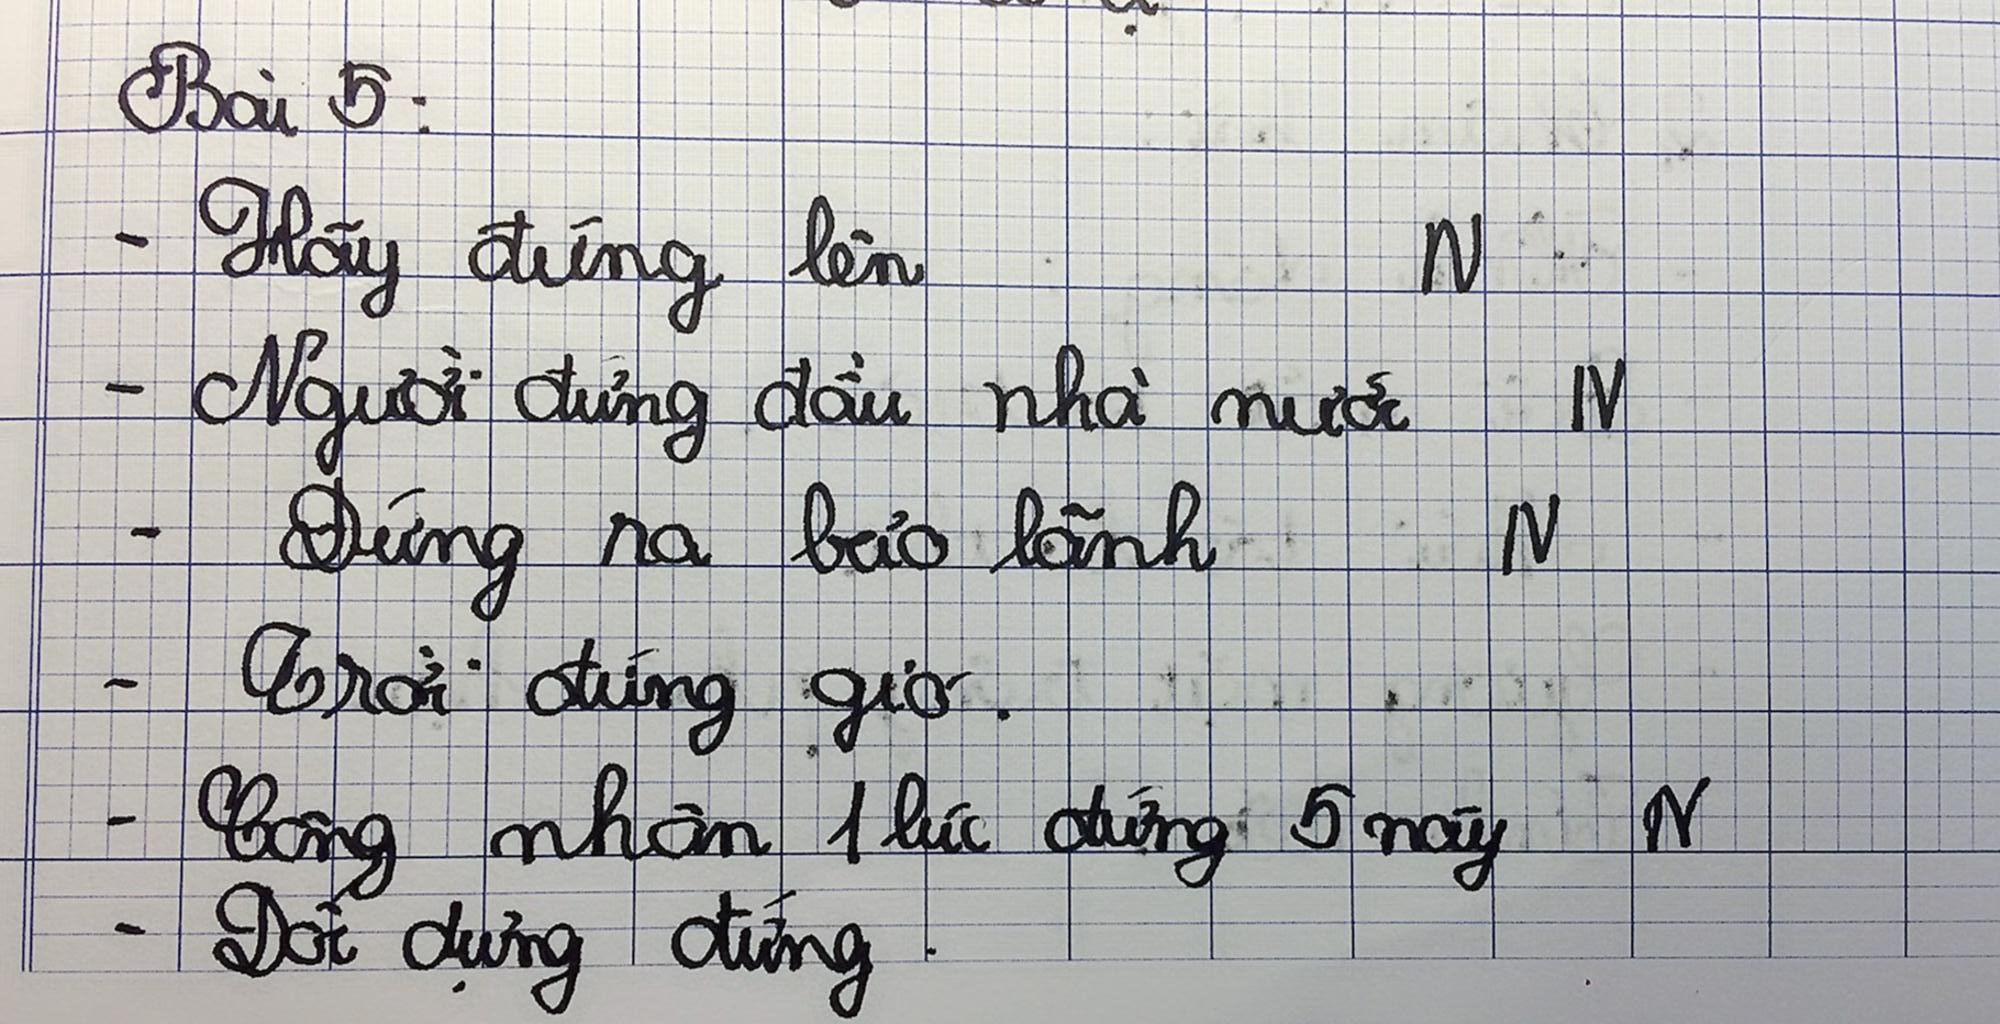 Bài 5:
- Hãy đứng lên N
- Người đứng đầu nhà nước N
- Đứng ra bảo lãnh N
- Trời đứng gió.
- Công nhân 1 lúc đứng 5 máy N
- Dốc dựng đứng.